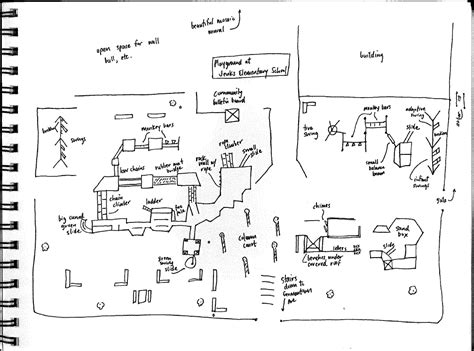 beautiful mosaic
mural
open space for wall
ball, etc.
Playground at
Jenks Elementary School
building
community
bulletin board
monkey bars
monkey bars
adaptive
swing
tire
swing
slide
rope
climber
small
slide
swings
low chains
rubber mat
bridge
rock
wall w/
rope
small
balance
beam
infant
swings
chain
climber
ladder
big curved
green
slide
chimes
sand
box
slide
benches under
covered roof
stairs
down to
Germantown
Ave
slide